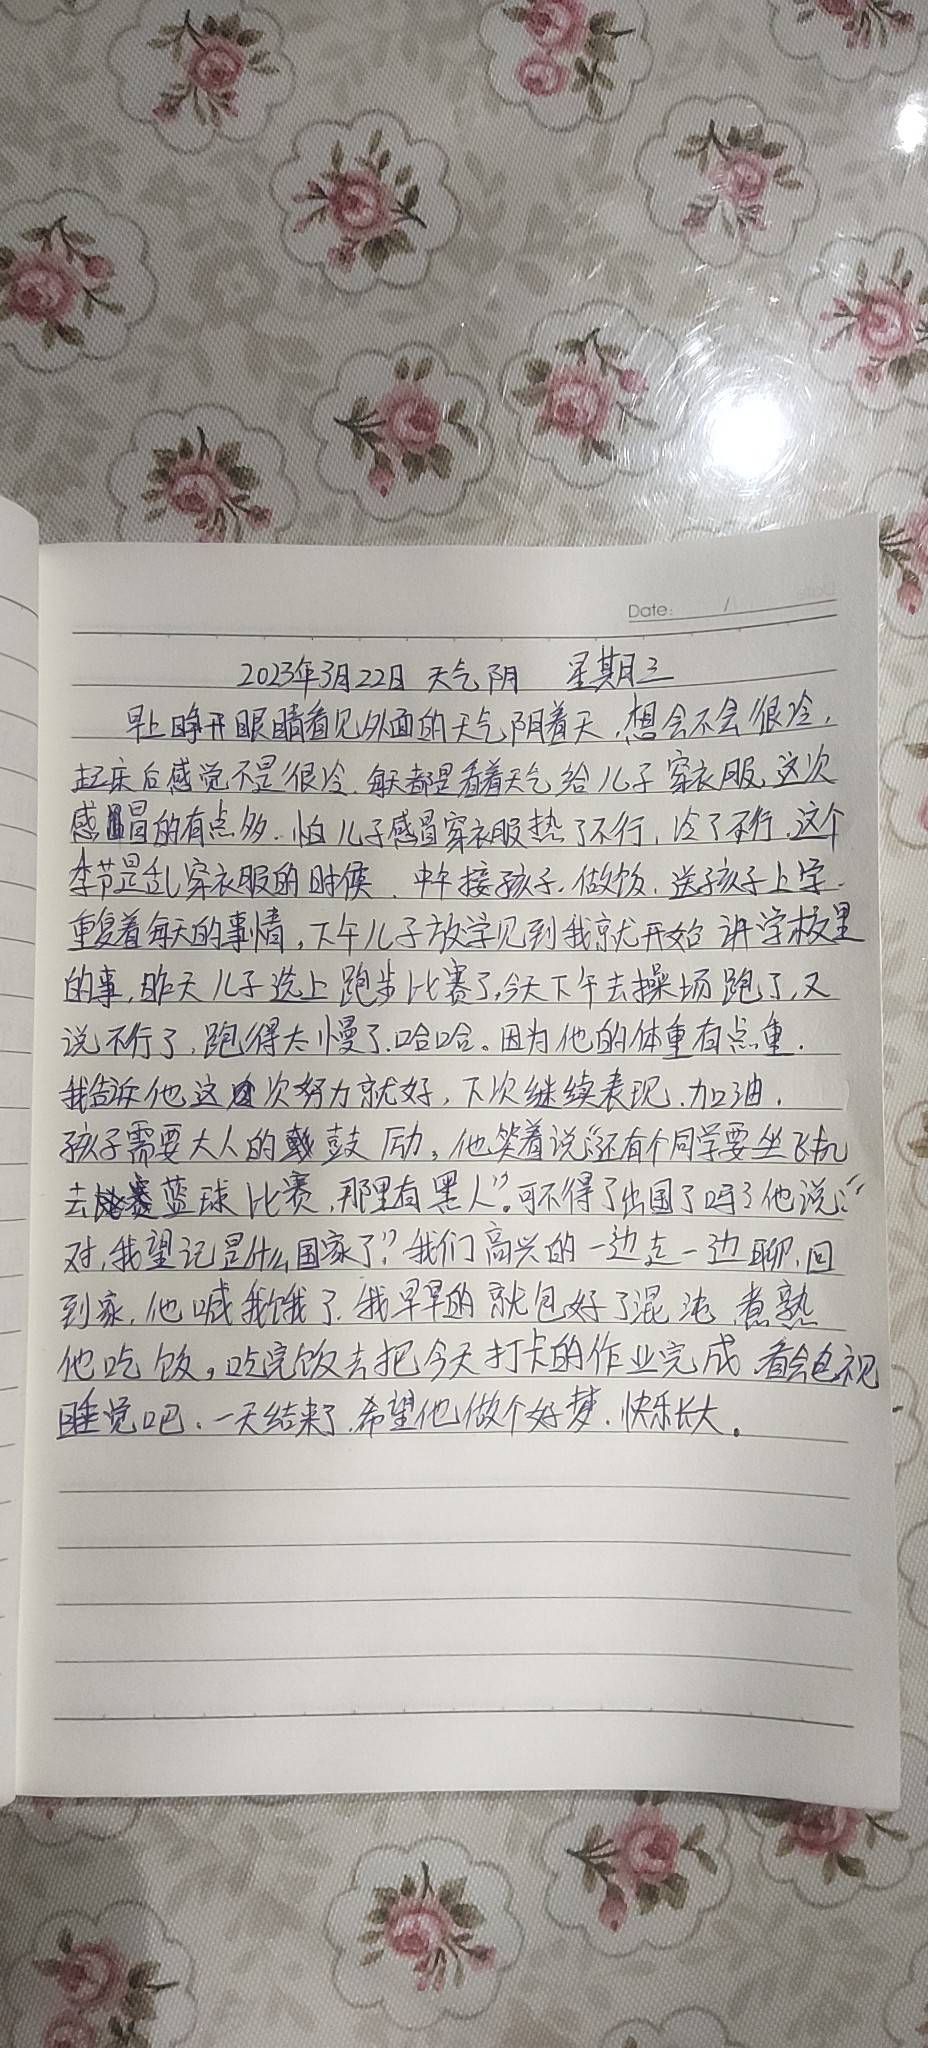 Date: /
2023年3月22日 天气阴 星期三
早上睁开眼睛看见外面的天气阴着天,想会不会很冷,
起床后感觉不是很冷.每天都是看着天气给儿子穿衣服,这次
感冒的有点多.怕儿子感冒穿衣服热了不行,冷了不行,这个
季节是乱穿衣服的时候.中午接孩子.做饭.送孩子上学.
重复着每天的事情,下午儿子放学见到我就开始讲学校里
的事,昨天儿子选上跑步比赛了,今天下午去操场跑了,又
说不行了,跑得太慢了.哈哈。因为他的体重有点重.
我告诉他这次努力就好,下次继续表现.加油.
孩子需要大人的鼓励。他笑着说:“还有个同学要坐飞机
去蓝球比赛,那里有黑人”。可不得了出国了吗?他说:“
对,我望记是什么国家了?”我们高兴的一边走一边聊,回
到家.他喊我饿了.我早早的就包好了混沌.煮熟
他吃饭。吃完饭去把今天打卡的作业完成.看会电视
睡觉吧.一天结束了.希望他做个好梦.快乐长大。